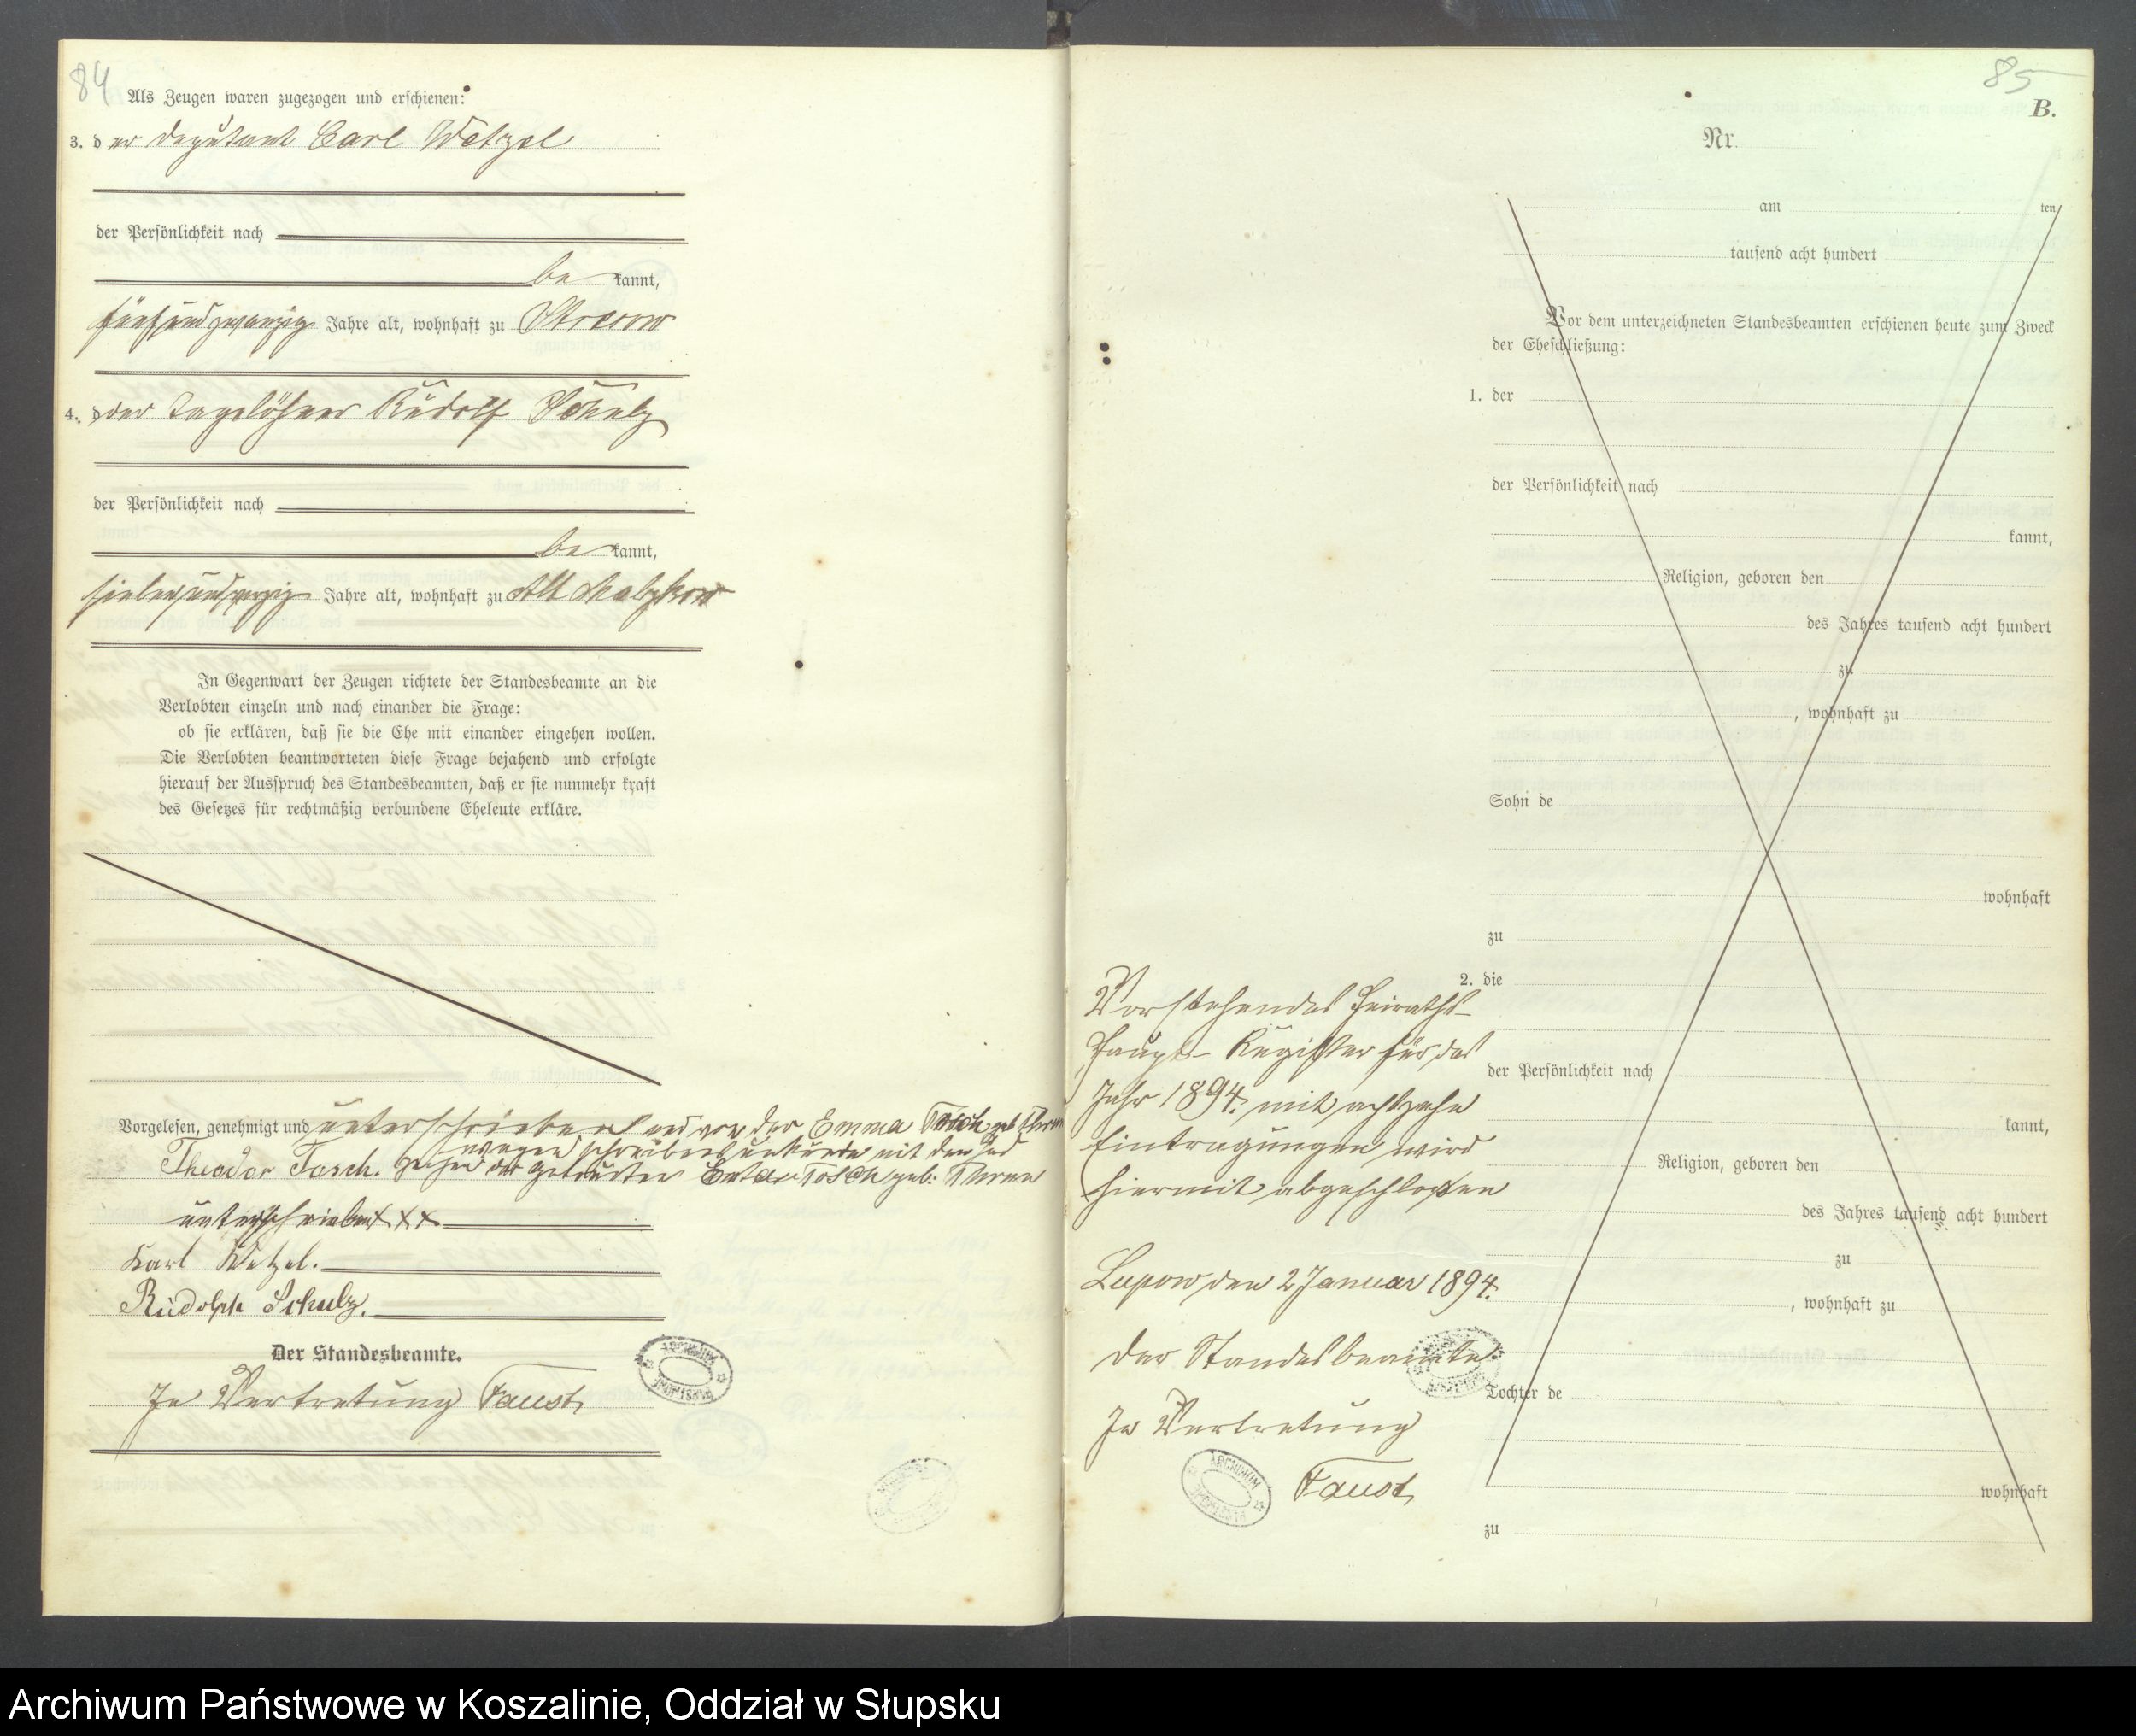 84
Als Zeugen waren zugezogen und erschienen:
3. der Deputant Carl Wetzel
der Persönlichkeit nach
be kannt,
fünfundzwanzig Jahre alt, wohnhaft zu
4. der Tagelöhner Rudolf Schulz
der Persönlichkeit nach
be kannt,
Jahre alt, wohnhaft zu Alt Malzkow
In Gegenwart der Zeugen richtete der Standesbeamte an die
Verlobten einzeln und nach einander die Frage:
ob sie erklären, daß sie die Ehe mit einander eingehen wollen.
Die Verlobten beantworteten diese Frage bejahend und erfolgte
hierauf der Ausspruch des Standesbeamten, daß er sie nunmehr kraft
des Gesetzes für rechtmäßig verbundene Eheleute erkläre.
Vorgelesen, genehmigt und unterschrieben und von der Emma Tosch geb
wegen Schreibensunkunde mit den
Theodor Tosch. Tosch geb.
unterschrieben XXX
Karl Wetzel.
Rudolph Schulz.
Der Standesbeamte.
In Vertretung Faust
85
B.
Nr.
am ten
tausend acht hundert
Vor dem unterzeichneten Standesbeamten erschienen heute zum Zweck
der Eheschließung:
1. der
der Persönlichkeit nach
kannt,
Religion, geboren den
des Jahres tausend acht hundert
zu
, wohnhaft zu
Sohn de
wohnhaft
zu
2. die
der Persönlichkeit nach
kannt,
Religion, geboren den
des Jahres tausend acht hundert
zu
, wohnhaft zu
Tochter de
wohnhaft
zu
Vorstehendes Heiraths-
Haupt-Register für das
Jahr 1894 mit achtzehn
Eintragungen wird
hiermit abgeschlossen
Lupow den 2 Januar 1894.
Der Standesbeamte
In Vertretung
Faust
ARCHIWUM
Archiwum Państwowe w Koszalinie, Oddział w Słupsku